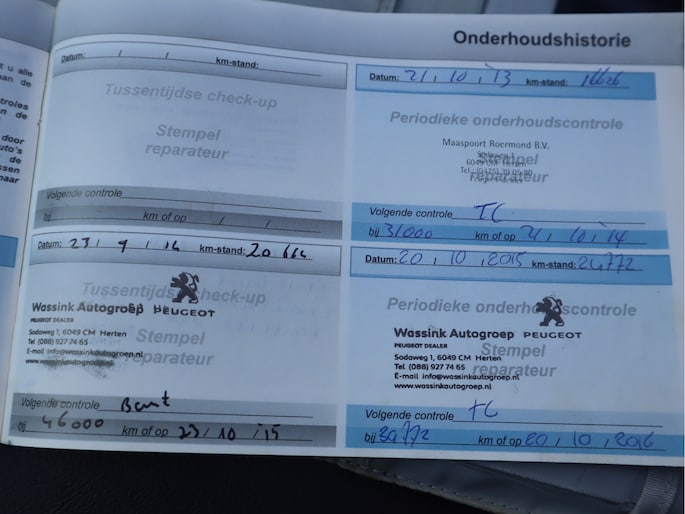 Onderhoudshistorie
Datum: / / km-stand:
Tussentijdse check-up
Stempel
reparateur
Volgende controle
bij km of op / /
Datum: 21, 10, '13 km-stand: 16626
Periodieke onderhoudscontrole
Maaspoort Roermond B.V.
Stempel
reparateur
Volgende controle TC
bij 31000 km of op 21, 10, '14
Datum: 23, 9, 14 km-stand: 20 664
Tussentijdse check-up
Wassink Autogroep PEUGEOT
PEUGEOT DEALER
Sodaweg 1, 6049 CM Herten
Stempel
Tel (088) 927 74 65
E-mail info@wassinkautogroep.nl
reparateur
www.wassinkautogroep.nl
Volgende controle
bij 46000 km of op 23, 10, '15
Datum: 20, 10, 2015 km-stand: 24772
Periodieke onderhoudscontrole
Wassink Autogroep PEUGEOT
PEUGEOT DEALER
Stempel
Sodaweg 1, 6049 CM Herten
Tel (088) 927 74 65
reparateur
E-mail info@wassinkautogroep.nl
www.wassinkautogroep.nl
Volgende controle TC
bij 39772 km of op 20, 10, 2016